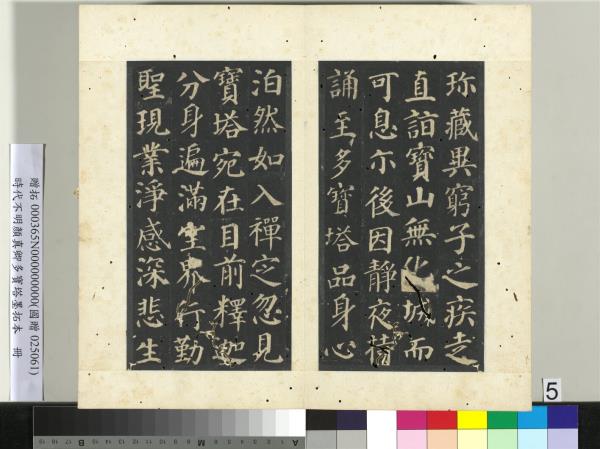 珎藏異窮子之疾走
直詣寶山無化城而
可息尒後因靜夜持
誦至多寶塔品身心
泊然如入禪定忽見
寶塔宛在目前釋迦
分身遍滿空界行勤
聖現業淨感深悲生
贈拓 000365N000000000(國贈 025061)
時代不明顏真卿多寶塔墨拓本 冊
5